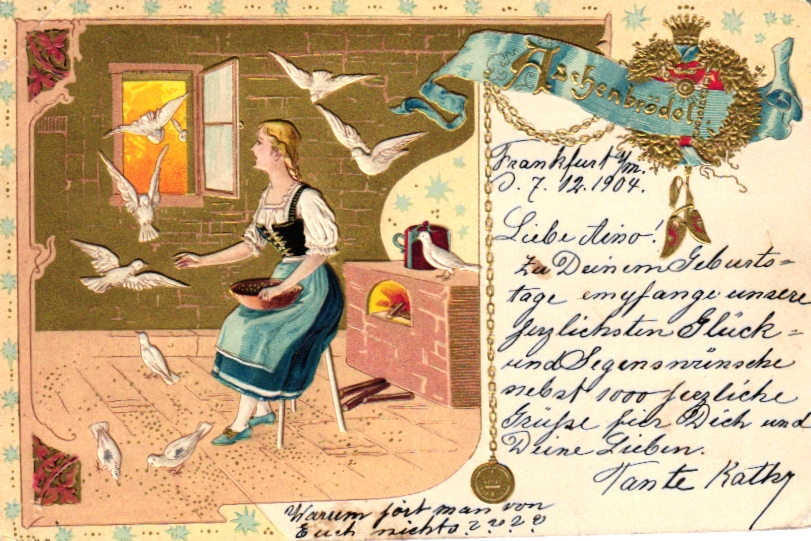 Aschenbrödel
Frankfurt a/m.
d. 7. 12. 1904.
Liebe Aino!
Zu Deinem Geburts=
tage empfange unsere
herzlichsten Glück=
und Segenswünsche
nebst 1000 herzliche
Grüße für Dich und
Deine Lieben.
Tante Kathy
Warum hört man von
Euch nichts? ? ? ?